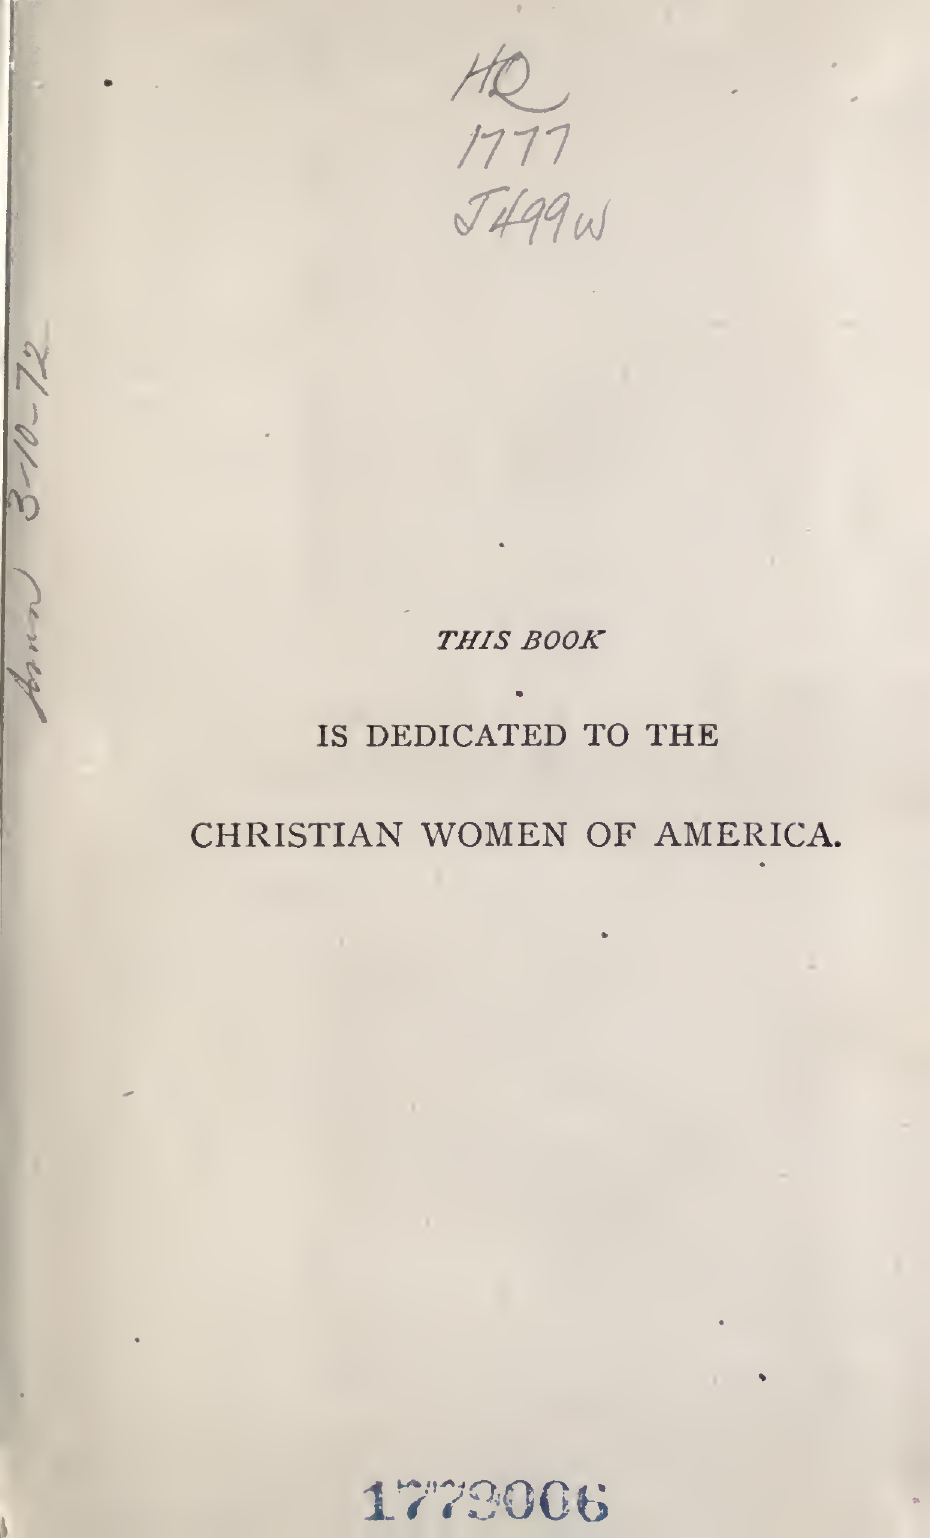 HQ
1777
J499w
3-10-72
THIS BOOK
IS DEDICATED TO THE
CHRISTIAN WOMEN OF AMERICA.
1773006